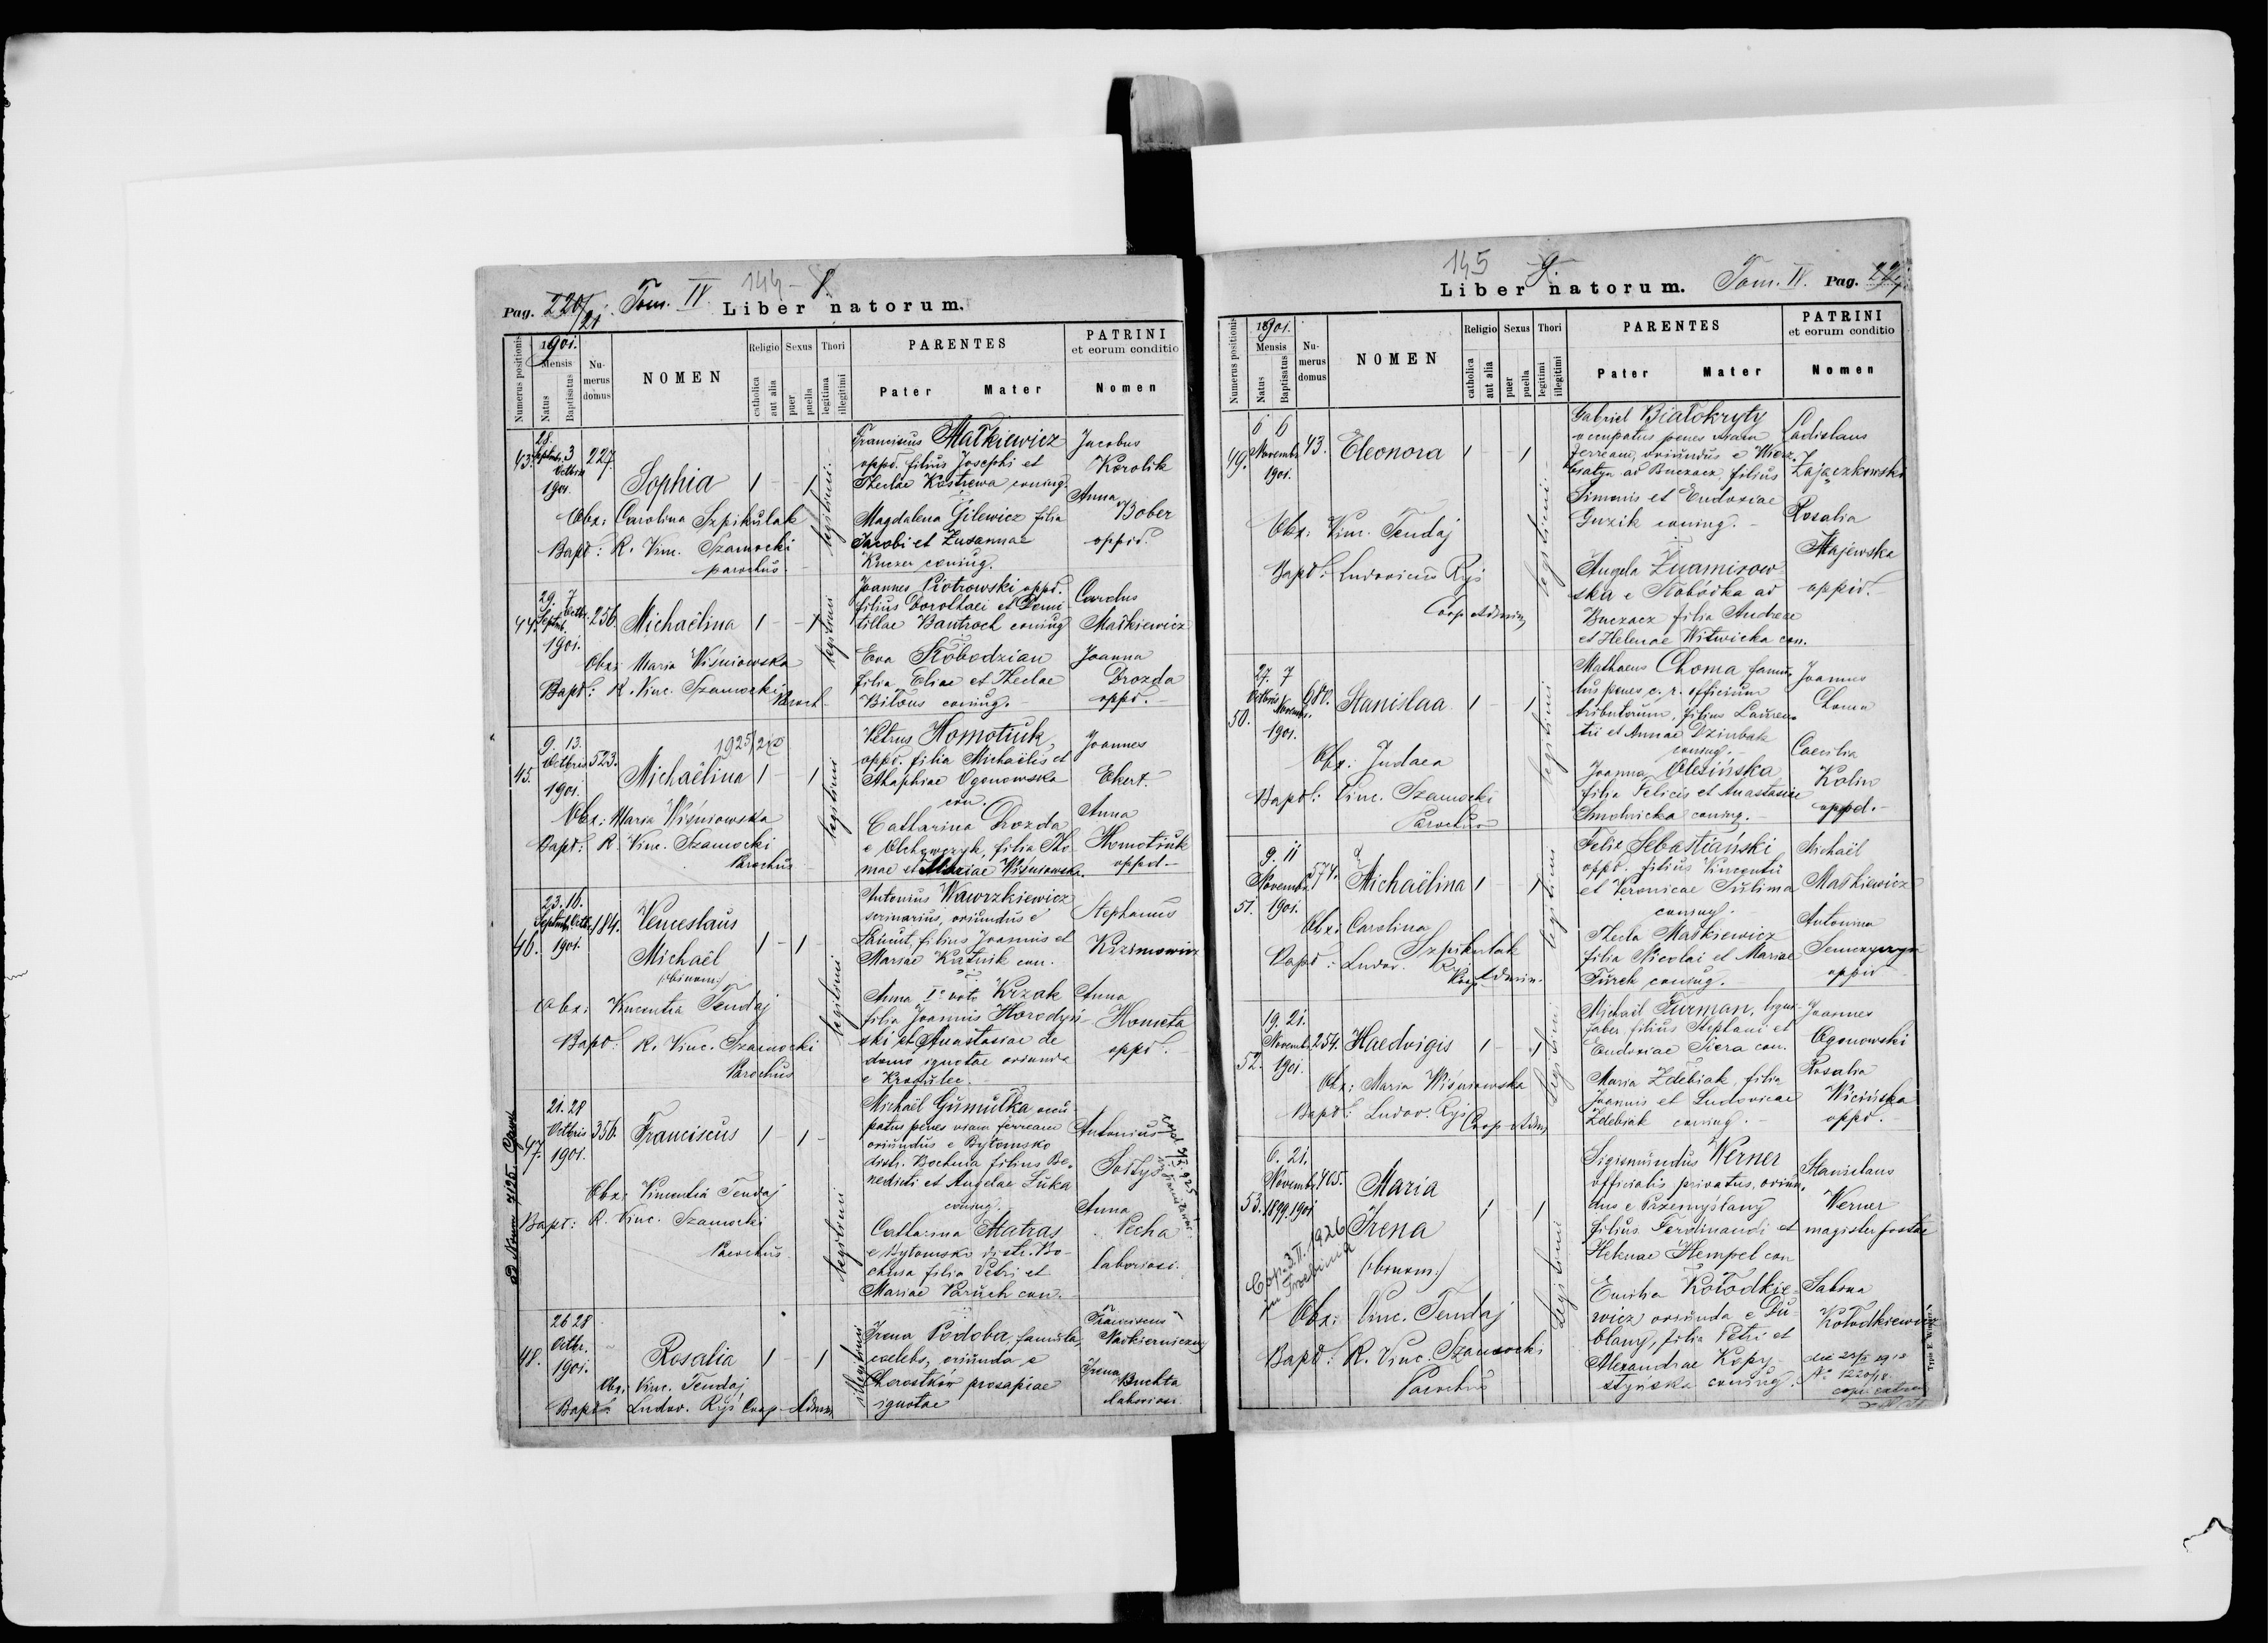 Pag. 220/21 Tom. IV 144 - 8.
Liber natorum.
Numerus positionis
1901.
Mensis
Natus
Baptisatus
Numerus domus
NOMEN
Religio
catholica
aut alia
Sexus
puer
puella
Thori
legitima
illegitimi
PARENTES
Pater Mater
PATRINI
et eorum conditio
Nomen
43.
28. 3
Septbr. Octbris
1901.
227.
Sophia 1 - 1
legitimi
Obx: Carolina Szpikulak
Bapt: R. Vinc. Szamocki
parochus.
Franciscus Maśkiewicz
oppd. filius Josephi et
Theclae Kostrewa coniug.
Magdalena Gilewicz filia
Jacobi et Zusannae
Kuczer coniug.
Jacobus
Korolik
Anna
Bober
oppid.
44.
29. 7
Septbr. Octbr.
1901.
256.
Michaëlina 1 - 1
legitimi
Obx: Maria Wiśniowska
Bapt: R. Vinc. Szamocki
Paroch.
Joannes Piotrowski oppd.
filius Dorothaei et Domi-
tillae Bantroch coniug
Eva Słobodzian
filia Eliae et Theclae
Bilous coniug.
Carolus
Maśkiewicz
Joanna
Drozda
oppd.
45.
9. 13.
Octbris
1901.
523.
Michaëlina 1 - 1
legitimi
Obx: Maria Wiśniowska
Bapt: R. Vinc. Szamocki
Parochus
Petrus Homotiuk,
oppd. filia Michaëlis et
Ahaphiae Ogonowska
con.
Catharina Drozda
e Olchowczyk, filia Tho-
mae et Mariae Wiśniowska.
Joannes
Ekert
Anna
Homotiuk
oppd.
46.
23. 16.
Septbr. Octbr.
1901.
184.
Venceslaus
Michaël
(binom.)
1 - 1
legitimi
Obx: Vincentia Tendaj
Bapt: R. Vinc. Szamocki
Parochus
Antonius Wawrzkiewicz
scrinarius, oriundus e
Łańcut, filius Joannis et
Mariae Kutnik con.
Anna Iº voto Krzak
filia Joannis Horodyń-
ski et Anastasiae de
domo ignotae oriunda
e Krogulec.
Stephanus
Anna
Hometa
oppd.
47.
21. 28
Octbris
1901.
356.
Franciscus 1 - 1 -
legitimi
Obx: Vincentia Tendaj
Bapt: R. Vinc. Szamocki
Parochus.
Michaël Gumułka occu-
patus penes viam ferream
oriundus e Bytomsko
distr. Bochnia filius Be-
nedicti et Angelae Łuka
coniug.
Catharina Matras
e Bytomsko distr. Bo-
chnia filia Petri et
Mariae Paruch con.
Antonius
Sołtys
Anna
Pecha
laboriosi.
48.
26 28
Octbr.
1901.
Rosalia 1 - 1
illegitimi
Obx: Vinc. Tendaj
Bapt: Ludov. Ryś Coop. Admin.
Irena Podoba, famula,
caelebs, oriunda e
Chorostków prosapiae
ignotae
Franciscus
Irena
Buchta
laboriosi.
145 9.
Liber natorum. Tom. IV. Pag.
Numerus positionis
1901.
Mensis
Natus
Baptisatus
Numerus domus
NOMEN
Religio
catholica
aut alia
Sexus
puer
puella
Thori
legitimi
illegitimi
PARENTES
Pater Mater
PATRINI
et eorum conditio
Nomen
49.
6 6
Novembr.
1901.
43.
Eleonora 1 - 1
legitimi
Obx: Vinc. Tendaj
Bapt: Ludovicus Ryś
Coop. Admin.
Gabriel Białokryty
occupatus penes viam
ferream, oriundus e
ad Buczacz, filius
Simonis et Eudoxiae
Guzik coniug.
Angela
ska e Słobódka ad
Buczacz filia Andreae
et Helenae Witwicka con.
Ladislaus
Zajączkowski
Rosalia
Majewska
oppid.
50.
27. 7
Octbris Novembr.
1901.
Stanislaa 1 - 1
legitimi
Obx: Judaea
Bapt: Vinc. Szamocki
Parochus
Mathaeus Choma famu-
lus penes c. r. officium
tributorum, filius Lauren-
tii et Annae Dziubak
coniug.
Joanna Olesińska
filia Felicis et Anastasiae
Smolnicka coniug.
Joannes
Choma
Caecilia
Kolin
oppd.
51.
9. 11
Novembr.
1901.
574.
Michaëlina 1 - 1
legitimi
Obx: Carolina
Szpikulak
Bapt: Ludov. Ryś
Coop. Admin.
Felix Sebastiański
oppd. filius Vincentii
et Veronicae Sulima
coniug.
Thecla Maśkiewicz
filia Nicolai et Mariae
Furch coniug.
Michaël
Maśkiewicz
Antonina
oppid
52.
19. 21.
Novembr.
1901.
254.
Haedvigis 1 - 1
legitimi
Obx: Maria Wiśniowska
Bapt: Ludov. Ryś
Coop. Adm.
Michaël Furman, lign-
faber filius Stephani et
Eudoxiae Siera con.
Maria Zdebiak, filia
Joannis et Ludovicae
Zdebiak coniug.
Joannes
Ogonowski
Rosalia
Wicińska
oppd.
53.
6. 21.
Novembr.
1899. 1901
465.
Maria
Irena
(binom.)
1 1
legitimi
Cop. 3.II.1926
in Trzebinia
Obx: Vinc. Tendaj
Bapt: R. Vinc. Szamocki
Parochus
Sigismundus Werner
officialis privatus, oriun-
dus e Przemyślany
filius Ferdinandi et
Helenae Hempel con
Emilia Kołodkie-
wicz oriunda e Du-
blany, filia Petri et
Alexandrae Kopy-
styńska coniug.
Stanislaus
Werner
magister postae
Sabina
Kołodkiewicz
Typis E. Winiarz